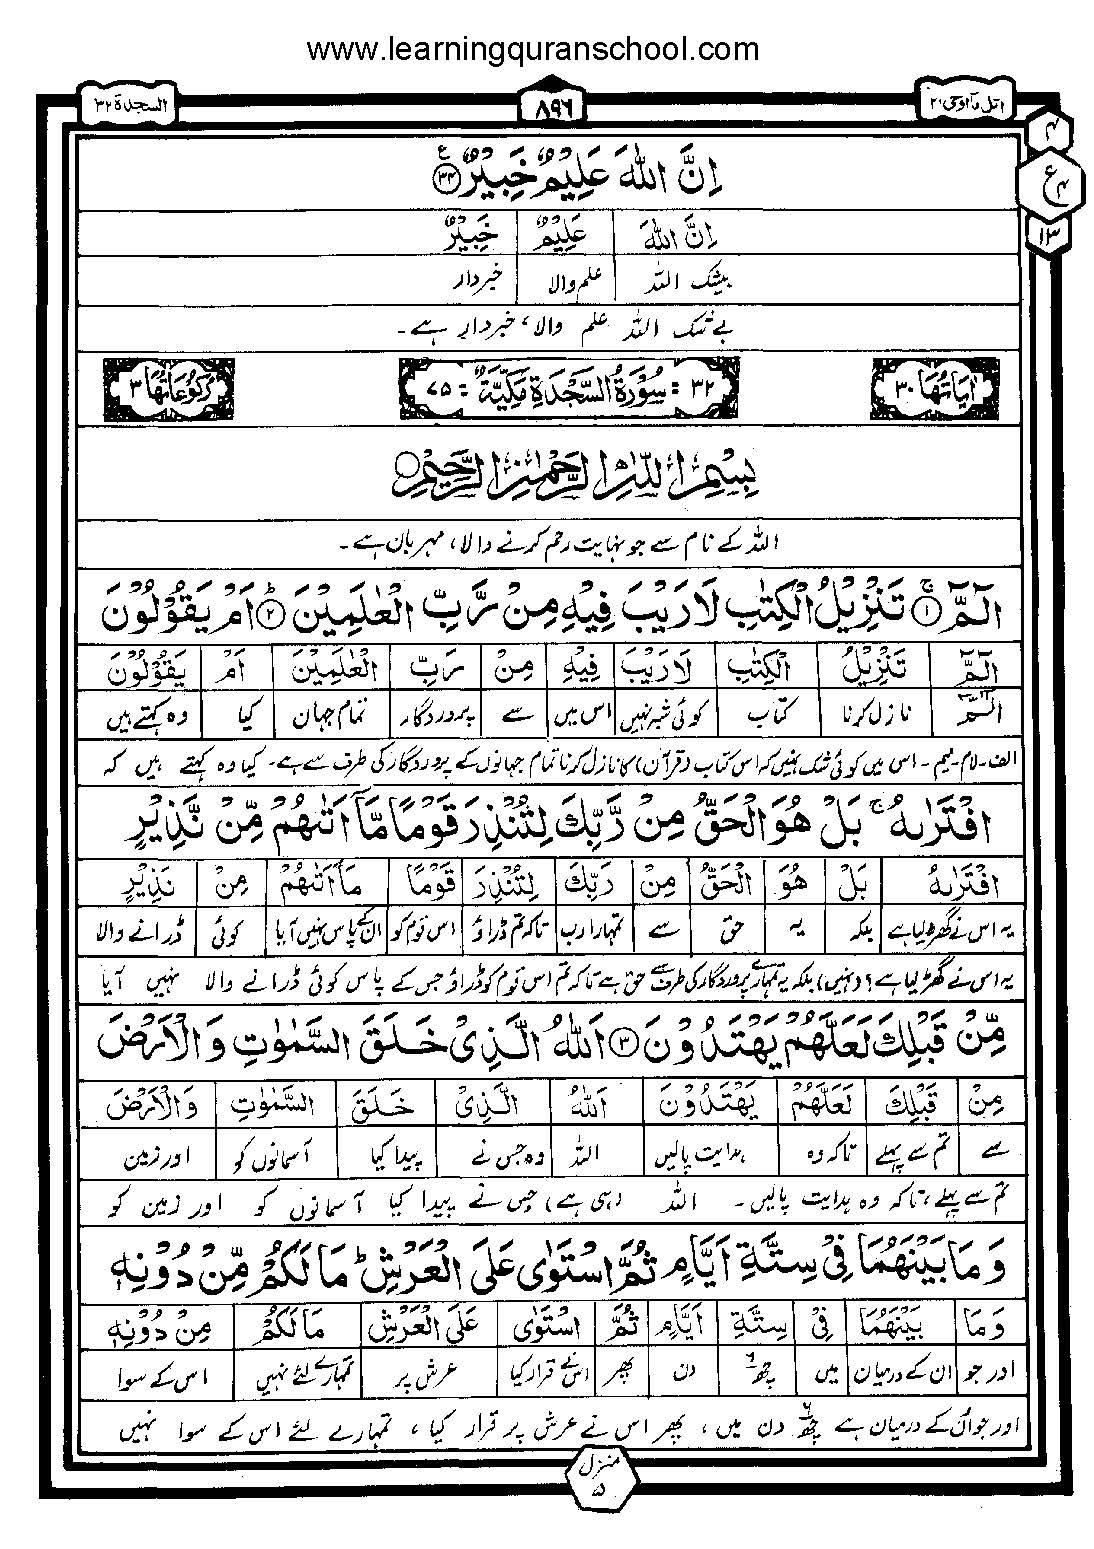 www.learningquranschool.com
اتل مآ اوحی ۲۱ ۸۹۶ السجدة ۳۲
۴
ع ۴
۱۳
اِنَّ اللّٰهَ عَلِيْمٌ خَبِيْرٌ ۳۴ ع
اِنَّ اللّٰهَ عَلِيْمٌ خَبِيْرٌ
بیشک اللہ علم والا خبردار
بے شک اللہ علم والا، خبردار ہے۔
اٰيَاتُهَا ۳۰ ۳۲ = سُوْرَةُ السَّجْدَةِ مَكِّيَّةٌ = ۷۵ رُكُوْعَاتُهَا ۳
بِسْمِ اللّٰهِ الرَّحْمٰنِ الرَّحِيْمِ
اللہ کے نام سے جو نہایت رحم کرنے والا، مہربان ہے۔
الٓمّٓ ۚ۱ تَنْزِيْلُ الْكِتٰبِ لَا رَيْبَ فِيْهِ مِنْ رَّبِّ الْعٰلَمِيْنَ ؕ۲ اَمْ يَقُوْلُوْنَ
الٓمّٓ تَنْزِيْلُ الْكِتٰبِ لَا رَيْبَ فِيْهِ مِنْ رَبِّ الْعٰلَمِيْنَ اَمْ يَقُوْلُوْنَ
الٓمّٓ نازل کرنا کتاب کوئی شبہ نہیں اس میں سے پروردگار تمام جہان کیا وہ کہتے ہیں
الف۔لام۔میم۔ اس میں کوئی شک نہیں کہ اس کتاب (قرآن) کا نازل کرنا تمام جہانوں کے پروردگار کی طرف سے ہے۔ کیا وہ کہتے ہیں کہ
افْتَرٰىهُ ۚ بَلْ هُوَ الْحَقُّ مِنْ رَّبِّكَ لِتُنْذِرَ قَوْمًا مَّآ اَتٰىهُمْ مِّنْ نَّذِيْرٍ
افْتَرٰىهُ بَلْ هُوَ الْحَقُّ مِنْ رَبِّكَ لِتُنْذِرَ قَوْمًا مَآ اَتٰىهُمْ مِنْ نَذِيْرٍ
یہ اس نے گھڑ لیا ہے بلکہ یہ حق سے تمہارا رب تاکہ تم ڈراؤ اس قوم کو ان کے پاس نہیں آیا کوئی ڈرانے والا
یہ اس نے گھڑ لیا ہے؟ (نہیں) بلکہ یہ تمہارے پروردگار کی طرف سے حق ہے تاکہ تم اس قوم کو ڈراؤ جس کے پاس کوئی ڈرانے والا نہیں آیا
مِّنْ قَبْلِكَ لَعَلَّهُمْ يَهْتَدُوْنَ ۳ اَللّٰهُ الَّذِيْ خَلَقَ السَّمٰوٰتِ وَالْاَرْضَ
مِنْ قَبْلِكَ لَعَلَّهُمْ يَهْتَدُوْنَ اَللّٰهُ الَّذِيْ خَلَقَ السَّمٰوٰتِ وَالْاَرْضَ
سے تم سے پہلے تاکہ وہ ہدایت پالیں اللہ وہ جس نے پیدا کیا آسمانوں کو اور زمین
تم سے پہلے، تاکہ وہ ہدایت پالیں۔ اللہ (وہی ہے) جس نے پیدا کیا آسمانوں کو اور زمین کو
وَمَا بَيْنَهُمَا فِيْ سِتَّةِ اَيَّامٍ ثُمَّ اسْتَوٰى عَلَى الْعَرْشِ ؕ مَا لَكُمْ مِّنْ دُوْنِهٖ
وَمَا بَيْنَهُمَا فِيْ سِتَّةِ اَيَّامٍ ثُمَّ اسْتَوٰى عَلَى الْعَرْشِ مَا لَكُمْ مِنْ دُوْنِهٖ
اور جو ان کے درمیان میں چھ دن پھر اس نے قرار کیا عرش پر تمہارے لئے نہیں اس کے سوا
اور جو ان کے درمیان ہے چھ دن میں، پھر اس نے عرش پر قرار کیا، تمہارے لئے اس کے سوا نہیں
منزل ۵